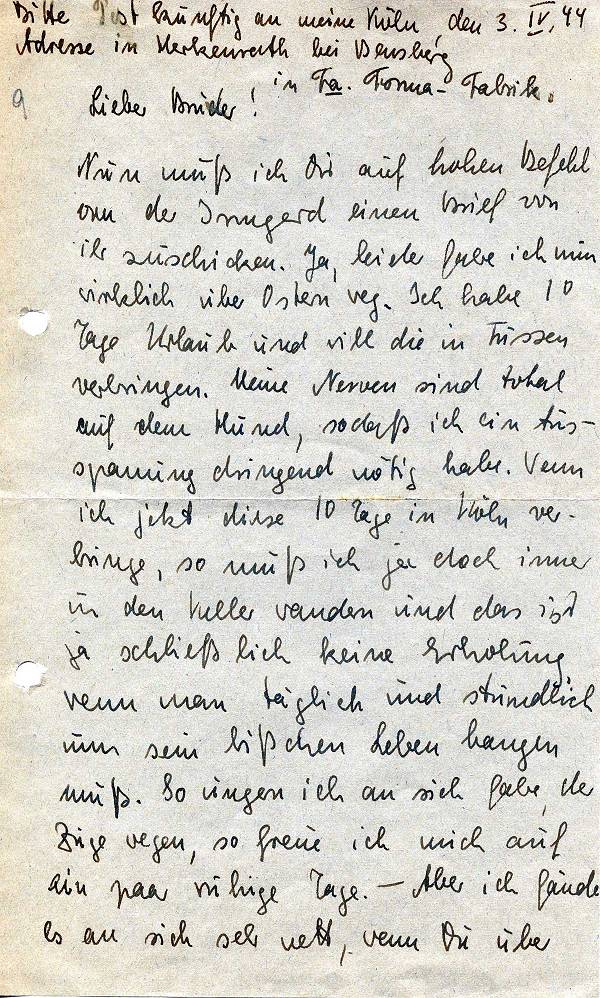 Bitte Post künftig an meine Köln, den 3. IV. 44
Adresse in Herkenrath bei Bensberg
in Fa. Forma-Fabrik.
9 Lieber Bruder!
Nun muß ich Dir auf hohen Befehl
von der Irmgard einen Brief von
ihr zuschicken. Ja, leider fahre ich nun
wirklich über Ostern weg. Ich habe 10
Tage Urlaub und will die in Füssen
verbringen. Meine Nerven sind total
auf dem Hund, sodaß ich ein Aus-
spannung dringend nötig habe. Wenn
ich jetzt diese 10 Tage in Köln ver-
bringe, so muß ich ja doch immer
in den Keller wandern und das ist
ja schließlich keine Erholung
wenn man täglich und stündlich
um sein bißchen Leben bangen
muß. So ungern ich an sich fahre, der
Züge wegen, so freue ich mich auf
ein paar ruhige Tage. — Aber ich fände
es an sich sehr nett, wenn Du über